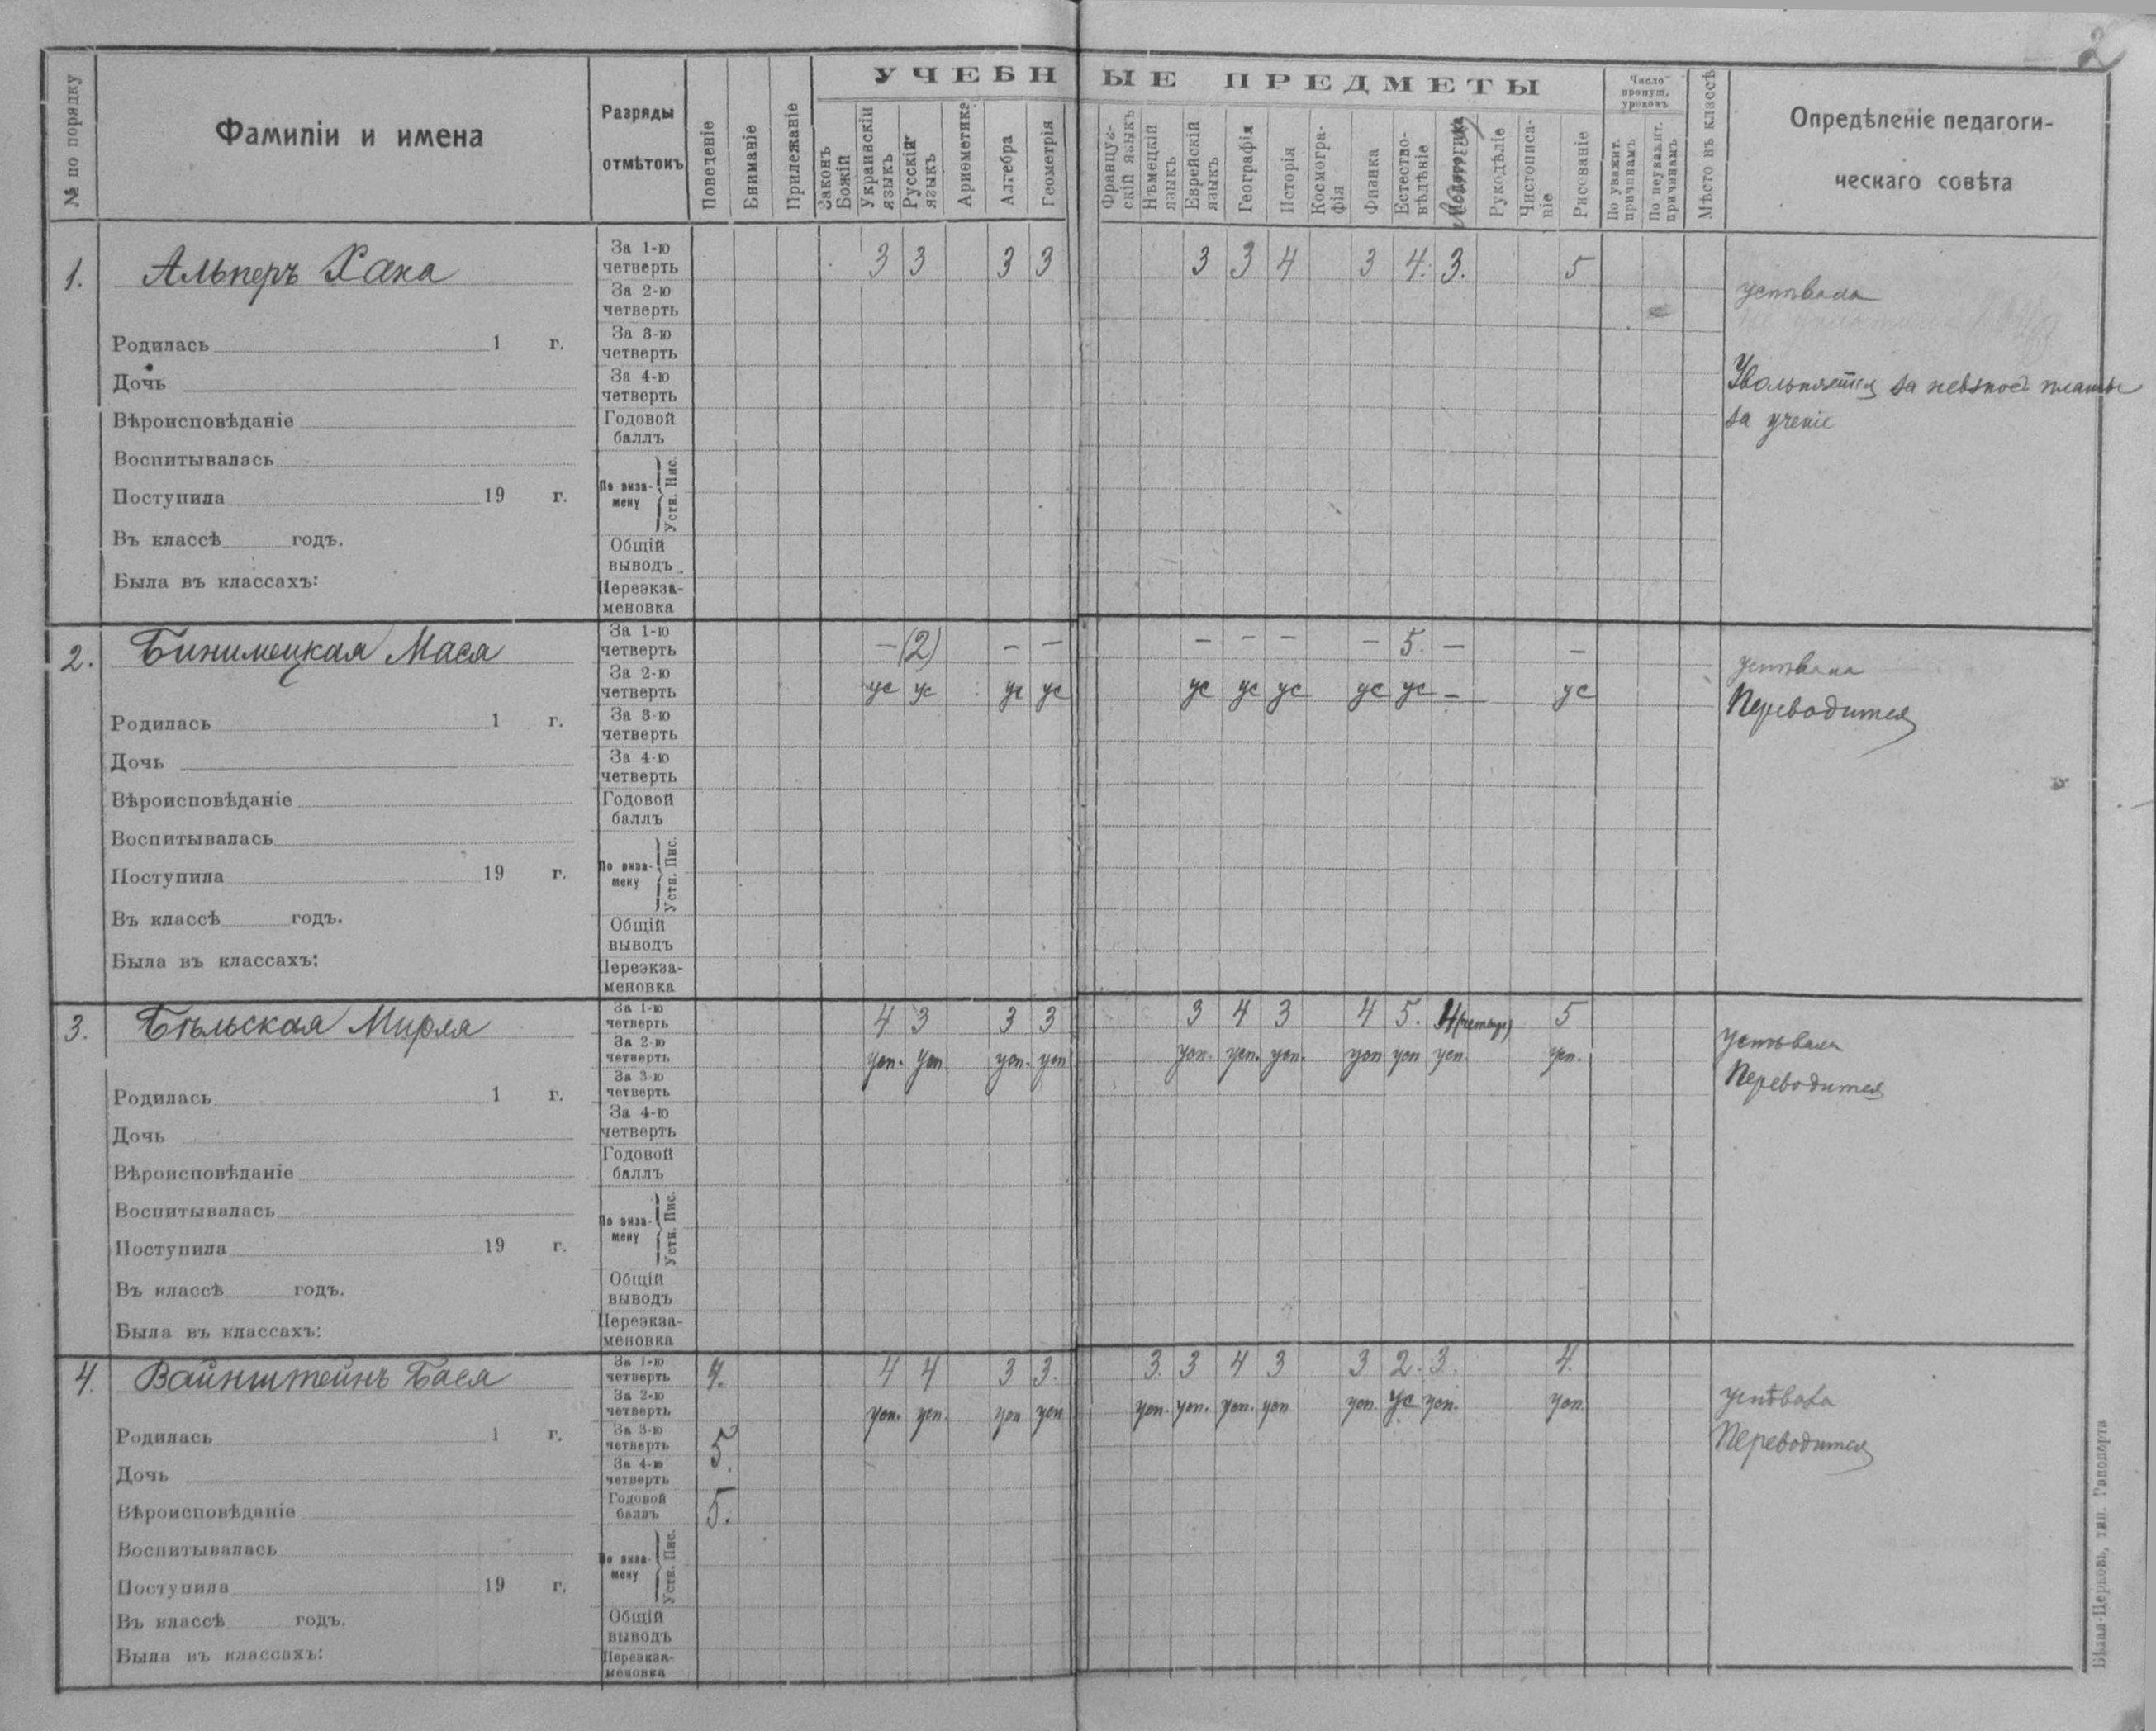 2
№ по порядку
Фамиліи и имена
Разряды
отмѣтокъ
Поведеніе
Вниманіе
Прилежаніе
УЧЕБНЫЕ ПРЕДМЕТЫ
Законъ Божій
Украинскій языкъ
Русскій языкъ
Ариѳметика
Алгебра
Геометрія
Француз-скій языкъ
Нѣмецкій языкъ
Еврейскій языкъ
Географія
Исторія
Космогра-фія
Физика
Естество-вѣдѣніе
Рукодѣліе
Чистописа-ніе
Рисованіе
Число пропущ. уроковъ
По уважит. причинамъ
По неуважит. причинамъ
Мѣсто въ классѣ
Опредѣленіе педагоги-
ческаго совѣта
1. Альперъ Хана
За 1-ю четверть 3 3 3 3 3 3 4 3 4. 3. 5
За 2-ю четверть
За 3-ю четверть
За 4-ю четверть
Годовой баллъ
По экза-мену Устн. Пис.
Общій выводъ
Переэкза-меновка
Родилась 1 г.
Дочь
Вѣроисповѣданіе
Воспитывалась
Поступила 19 г.
Въ классѣ годъ.
Была въ классахъ:
успѣвала
Увольняется за невзнос платы
за ученіе
2. Бинимецкая Мася
За 1-ю четверть – (2) – – – – – – 5. – –
За 2-ю четверть ус ус ус ус ус ус ус ус ус – ус
За 3-ю четверть
За 4-ю четверть
Годовой баллъ
По экза-мену Устн. Пис.
Общій выводъ
Переэкза-меновка
Родилась 1 г.
Дочь
Вѣроисповѣданіе
Воспитывалась
Поступила 19 г.
Въ классѣ годъ.
Была въ классахъ:
успѣвала
Переводится
3. Бѣльская Мирля
За 1-ю четверть 4 3 3 3 3 4 3 4 5. 4 (четыре) 5
За 2-ю четверть усп. усп. усп. усп. усп. усп. усп. усп. усп. усп. усп.
За 3-ю четверть
За 4-ю четверть
Годовой баллъ
По экза-мену Устн. Пис.
Общій выводъ
Переэкза-меновка
Родилась 1 г.
Дочь
Вѣроисповѣданіе
Воспитывалась
Поступила 19 г.
Въ классѣ годъ.
Была въ классахъ:
успѣвала
Переводится
4. Вайнштейнъ Бася
За 1-ю четверть 4. 4 4 3 3. 3. 3 4 3 3 2. 3. 4.
За 2-ю четверть усп. усп. усп усп усп. усп. усп. усп усп. ус усп. усп.
За 3-ю четверть 5.
За 4-ю четверть
Годовой баллъ 5.
По экза-мену Устн. Пис.
Общій выводъ
Переэкза-меновка
Родилась 1 г.
Дочь
Вѣроисповѣданіе
Воспитывалась
Поступила 19 г.
Въ классѣ годъ.
Была въ классахъ:
успѣвала
Переводится
Бѣлая-Церковь, тип. Рапопорта